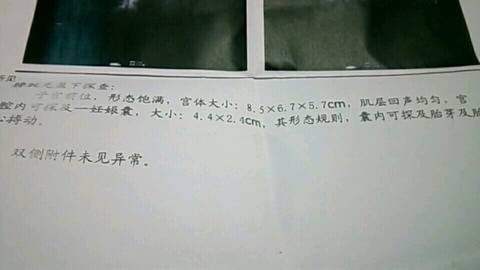 所见
膀胱充盈下探查:
子宫前位, 形态饱满, 宫体大小: 8.5×6.7×5.7cm, 肌层回声均匀。宫
腔内可探及一妊娠囊, 大小: 4.4×2.4cm, 其形态规则, 囊内可探及胎芽及胎
心搏动。
双侧附件未见异常。